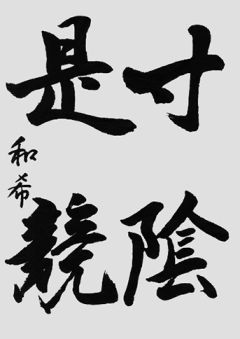 寸陰
是競
和希